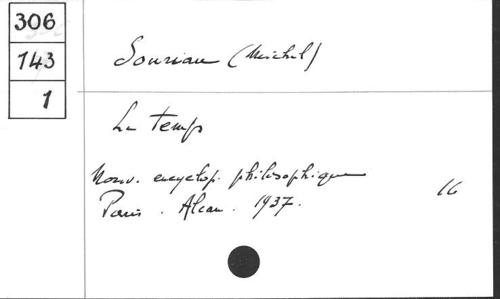 306
143
1
Souriau (Michel)
Le Temps
Nouv. encyclop. philosophique
16
Paris. Alcan. 1937.